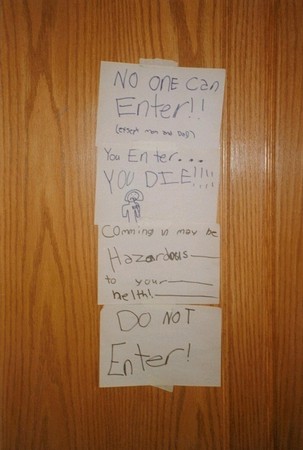 NO ONE Can
Enter!!
(except mom and Dad)
You Enter...
YOU DIE!!!!
Comming in may be
Hazardous
to your
helth!
DO NOT
Enter!